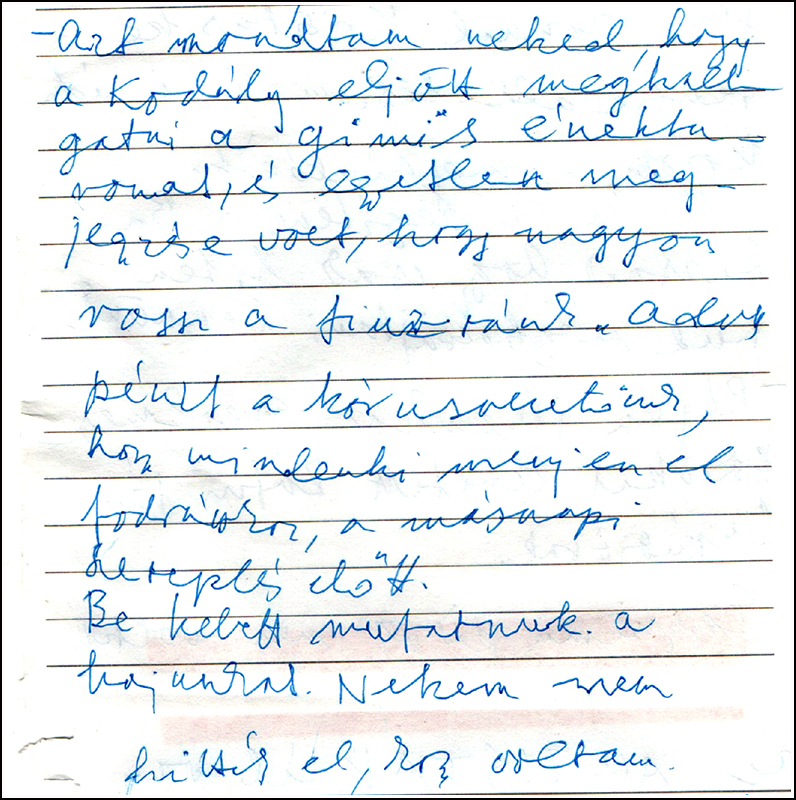 - Azt mondtam neked, hogy
a Kodály eljött meghall-
gatni a gimis énekka-
romat, és egyetlen meg-
jegyzése volt, hogy nagyon
rossz a frizuránk. Adott
pénzt a kórusvezetőnk,
hogy mindenki menjen el
fodrászhoz, a másnapi
szereplés előtt.
Be kellett mutatnunk a
hajunkat. Nekem nem
hitték el, hogy voltam.